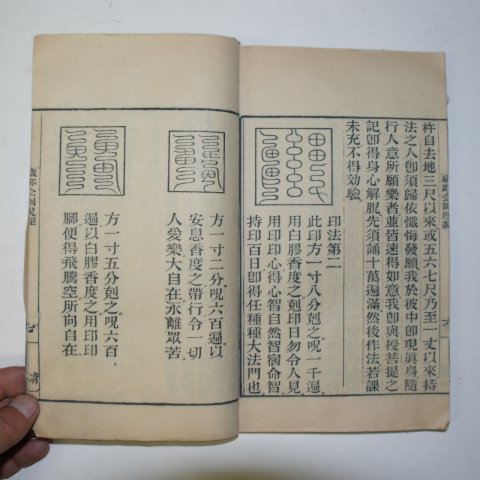 杵自去地三尺以來或五六七尺乃至一丈以來持
法之人卽須歸依懺悔發願我於彼中卽現眞身隨
行人意所願樂者並皆速得如意我卽與授菩提之
記卽得身心解脫先須誦十萬遍滿然後作法若課
未充不得効驗
印法第二
此印方一寸八分剋之呪一千遍
用白膠香度之剋印日勿令人見
用印印心得心智自然智宿命智
持印百日卽得任種種大法門也
方一寸二分呪六百遍以
安息香度之帶行令一切
人愛樂大自在永離眾苦
方一寸五分剋之呪六百
遍以白膠香度之用印印
腳便得飛騰空所向自在